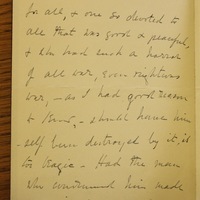 for all, & one so devoted to
all that was good & peaceful,
& who had such a horror
of all war, even righteous
war, – as I had good reason
to know, – should have him
-self been destroyed by it, is
too tragic – Had the man
who condemned him made